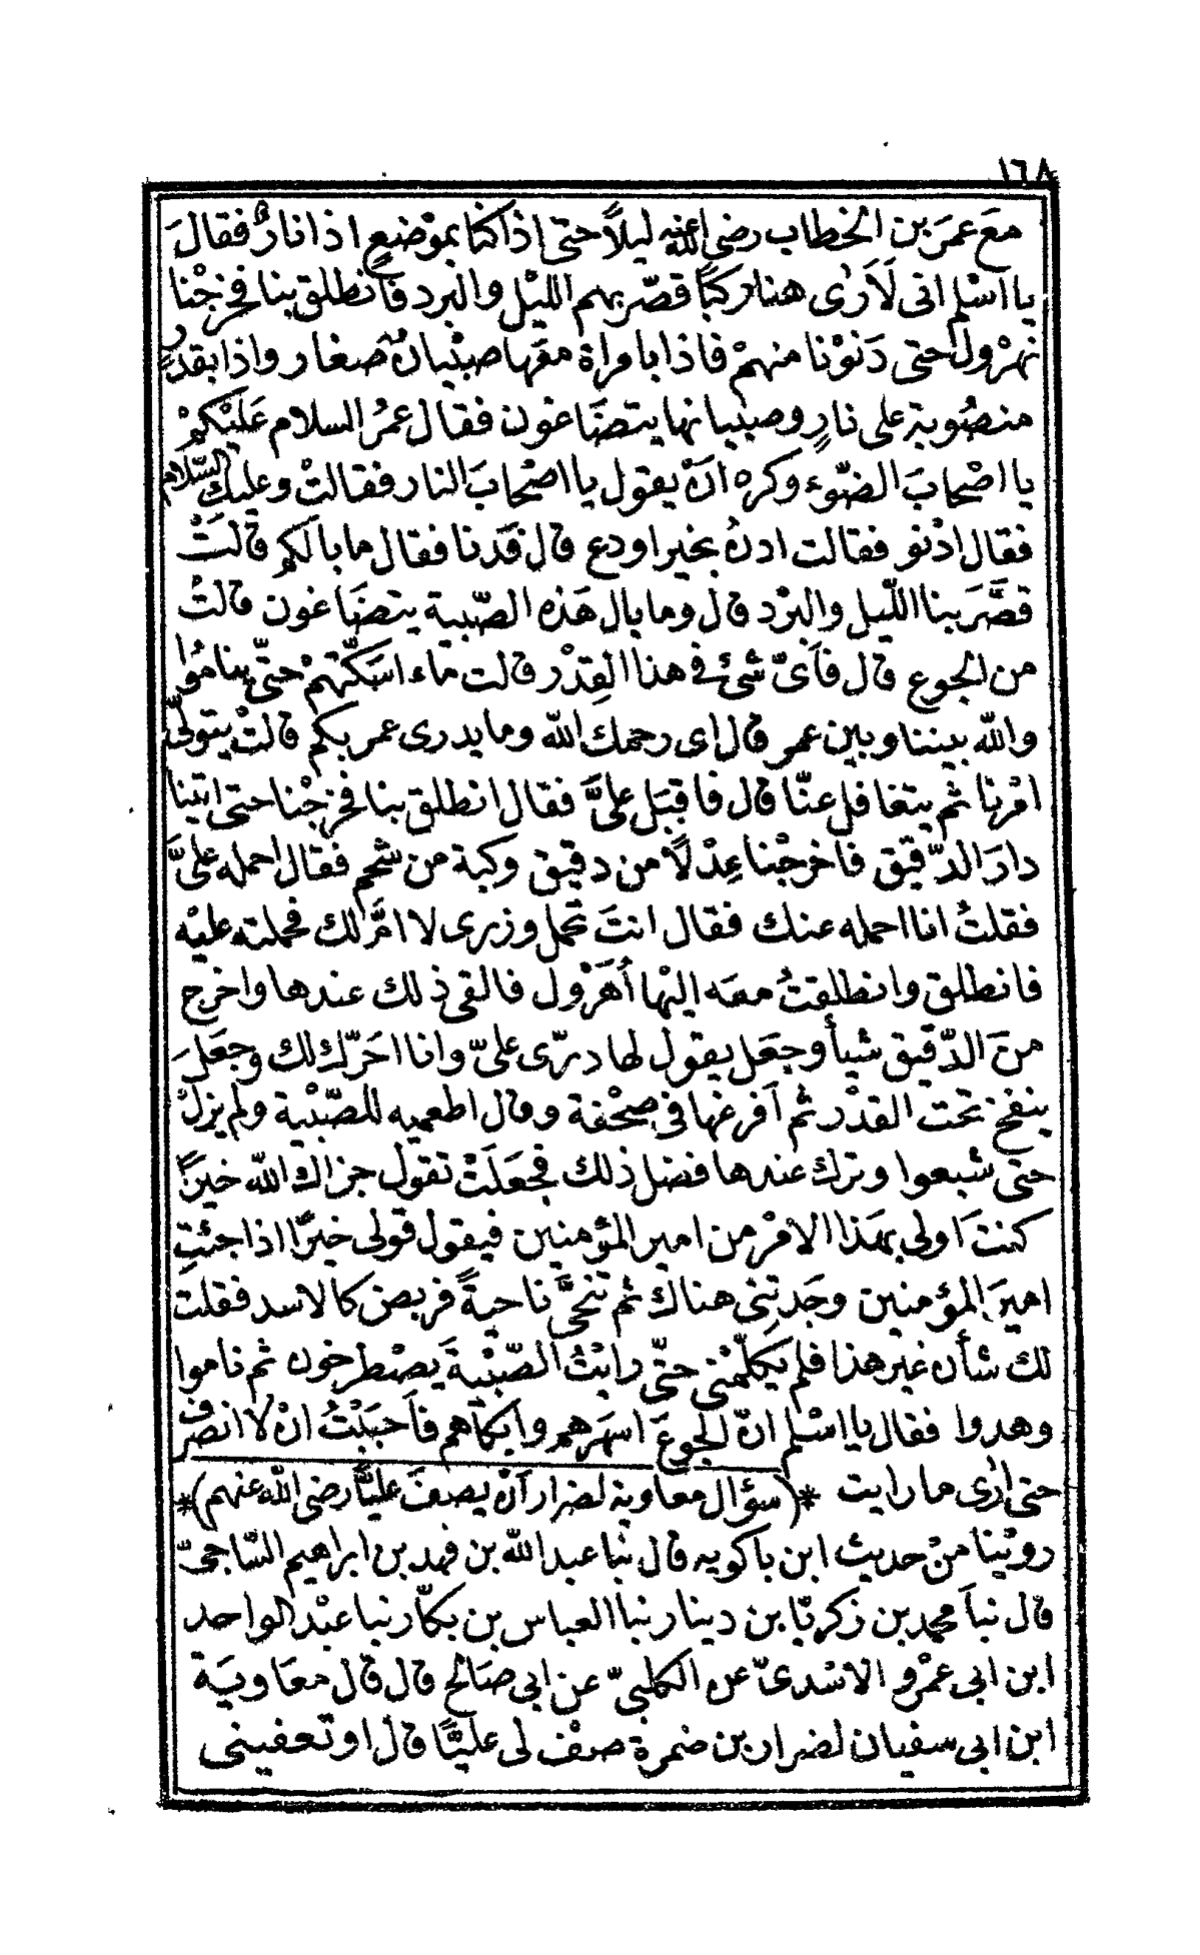 ١٦٨
مَعَ عمَرَ بن الخطاب رضى الله عنه ليلاً حتى اذا كنا بموْضعٍ اذا نارٌ فقالَ
يا اسْلم انى لَاَرٰى هنا ركبًا قصّر بهم الليْل والبرد فانطلق بنا فخرجْنا
نهرْول حتى دَنوْنا منهمْ فاذا بامراة معَها صبْيانٌ صغار واذا بقدْرٍ
منصُوبة على نارٍ وصبيانها يتضَاغون فقال عمرُ السلام عَليْكمْ
يا اصْحابَ الضّوْء وكره انْ يقول يا اصْحابَ النار فقالتْ وعليك السّلام
فقال ادْنو فقالت ادنُ بخير اودع قال فدَنا فقال ما بالكم قالَتْ
قصَّرَ بنا اللّيل والبرْد قال وما بال هَذه الصّبية يتضَاغون قالتْ
من الجوع قال فاَىّ شئ فى هذا القِدْر قالت ماء اسَكّتهمْ حتّى ينامُوا
والله بيننا وبين عمر قال اى رحمك الله وما يدرى عمر بكم قالتْ يتولّى
امْرنا ثم يتغافل عنّا قال فاقبَل علىَّ فقال انطلق بنا فخرجْنا حتى اتينا
دارَ الدّقيق فاخرجْنا عِدْلاً من دقيق وكبة من شحم فقال احمله علىَّ
فقلتُ انا احمله عنك فقال انتَ تحمل وزرى لا امَّ لك فحملته عليْه
فانطلق وانطلقتُ معَه اليْها أُهَرْول فالقى ذلك عندها واخرج
منَ الدّقيق شيأ وجعَل يقول لها درّى علىّ وانا احَرّك لك وجعَلَ
ينفخ تحت القدْر ثم اَفرغها فى صحْفة وقال اطعميه للصّبْية ولم يزلْ
حتى شبعوا وترك عندها فضل ذلك فجعَلَتْ تقول جزاك الله خيرًا
كنتَ اولى بهَذا الامْر من امير المؤمنين فيقول قولى خيرًا اذا جئتِ
اميرَ المؤمنين وجَدتِنى هناك ثم تنحَّى ناحيةً فربض كالاسد فقلت
لك شأن غير هذا فلم يكلّمْنى حتّى رايْتُ الصّبْيةَ يصْطرخون ثم ناموا
وهدوا فقال يا اسْلم انّ الجوعَ اسهَرهم وابكاهم فاَحبَبْتُ انْ لا انصرف
حتى ارٰى ما رايت *(سؤال معاوية لضرار اَنْ يصفَ عليًّا رضى الله عنهم)*
رويْنا منْ حديث ابن باكويه قال نبا عبد الله بن فهد بن ابراهيم السّاجىّ
قال نبأ محمد بن زكريّا بن دينار نبا العباس بن بكّار نبا عبْد الواحد
ابن ابى عمرْو الاسْدىّ عن الكلبىّ عن ابى صَالح قال قال معَاويَة
ابن ابى سفيان لضرار بن ضمرة صفْ لى عليًّا قال اوتعفينى